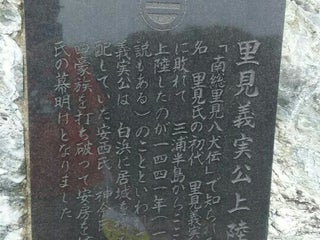 里見義実公上陸
「南総里見八犬伝」で知られ
名 里見氏の初代 里見義実
に敗れて 三浦半島からここ
上陸したのが一四四一年（一
説もある）のことといわ
義実公は 白浜に居城を
配していた安西氏 神余氏
の豪族を打ち破って安房を
氏の幕明けとなりました